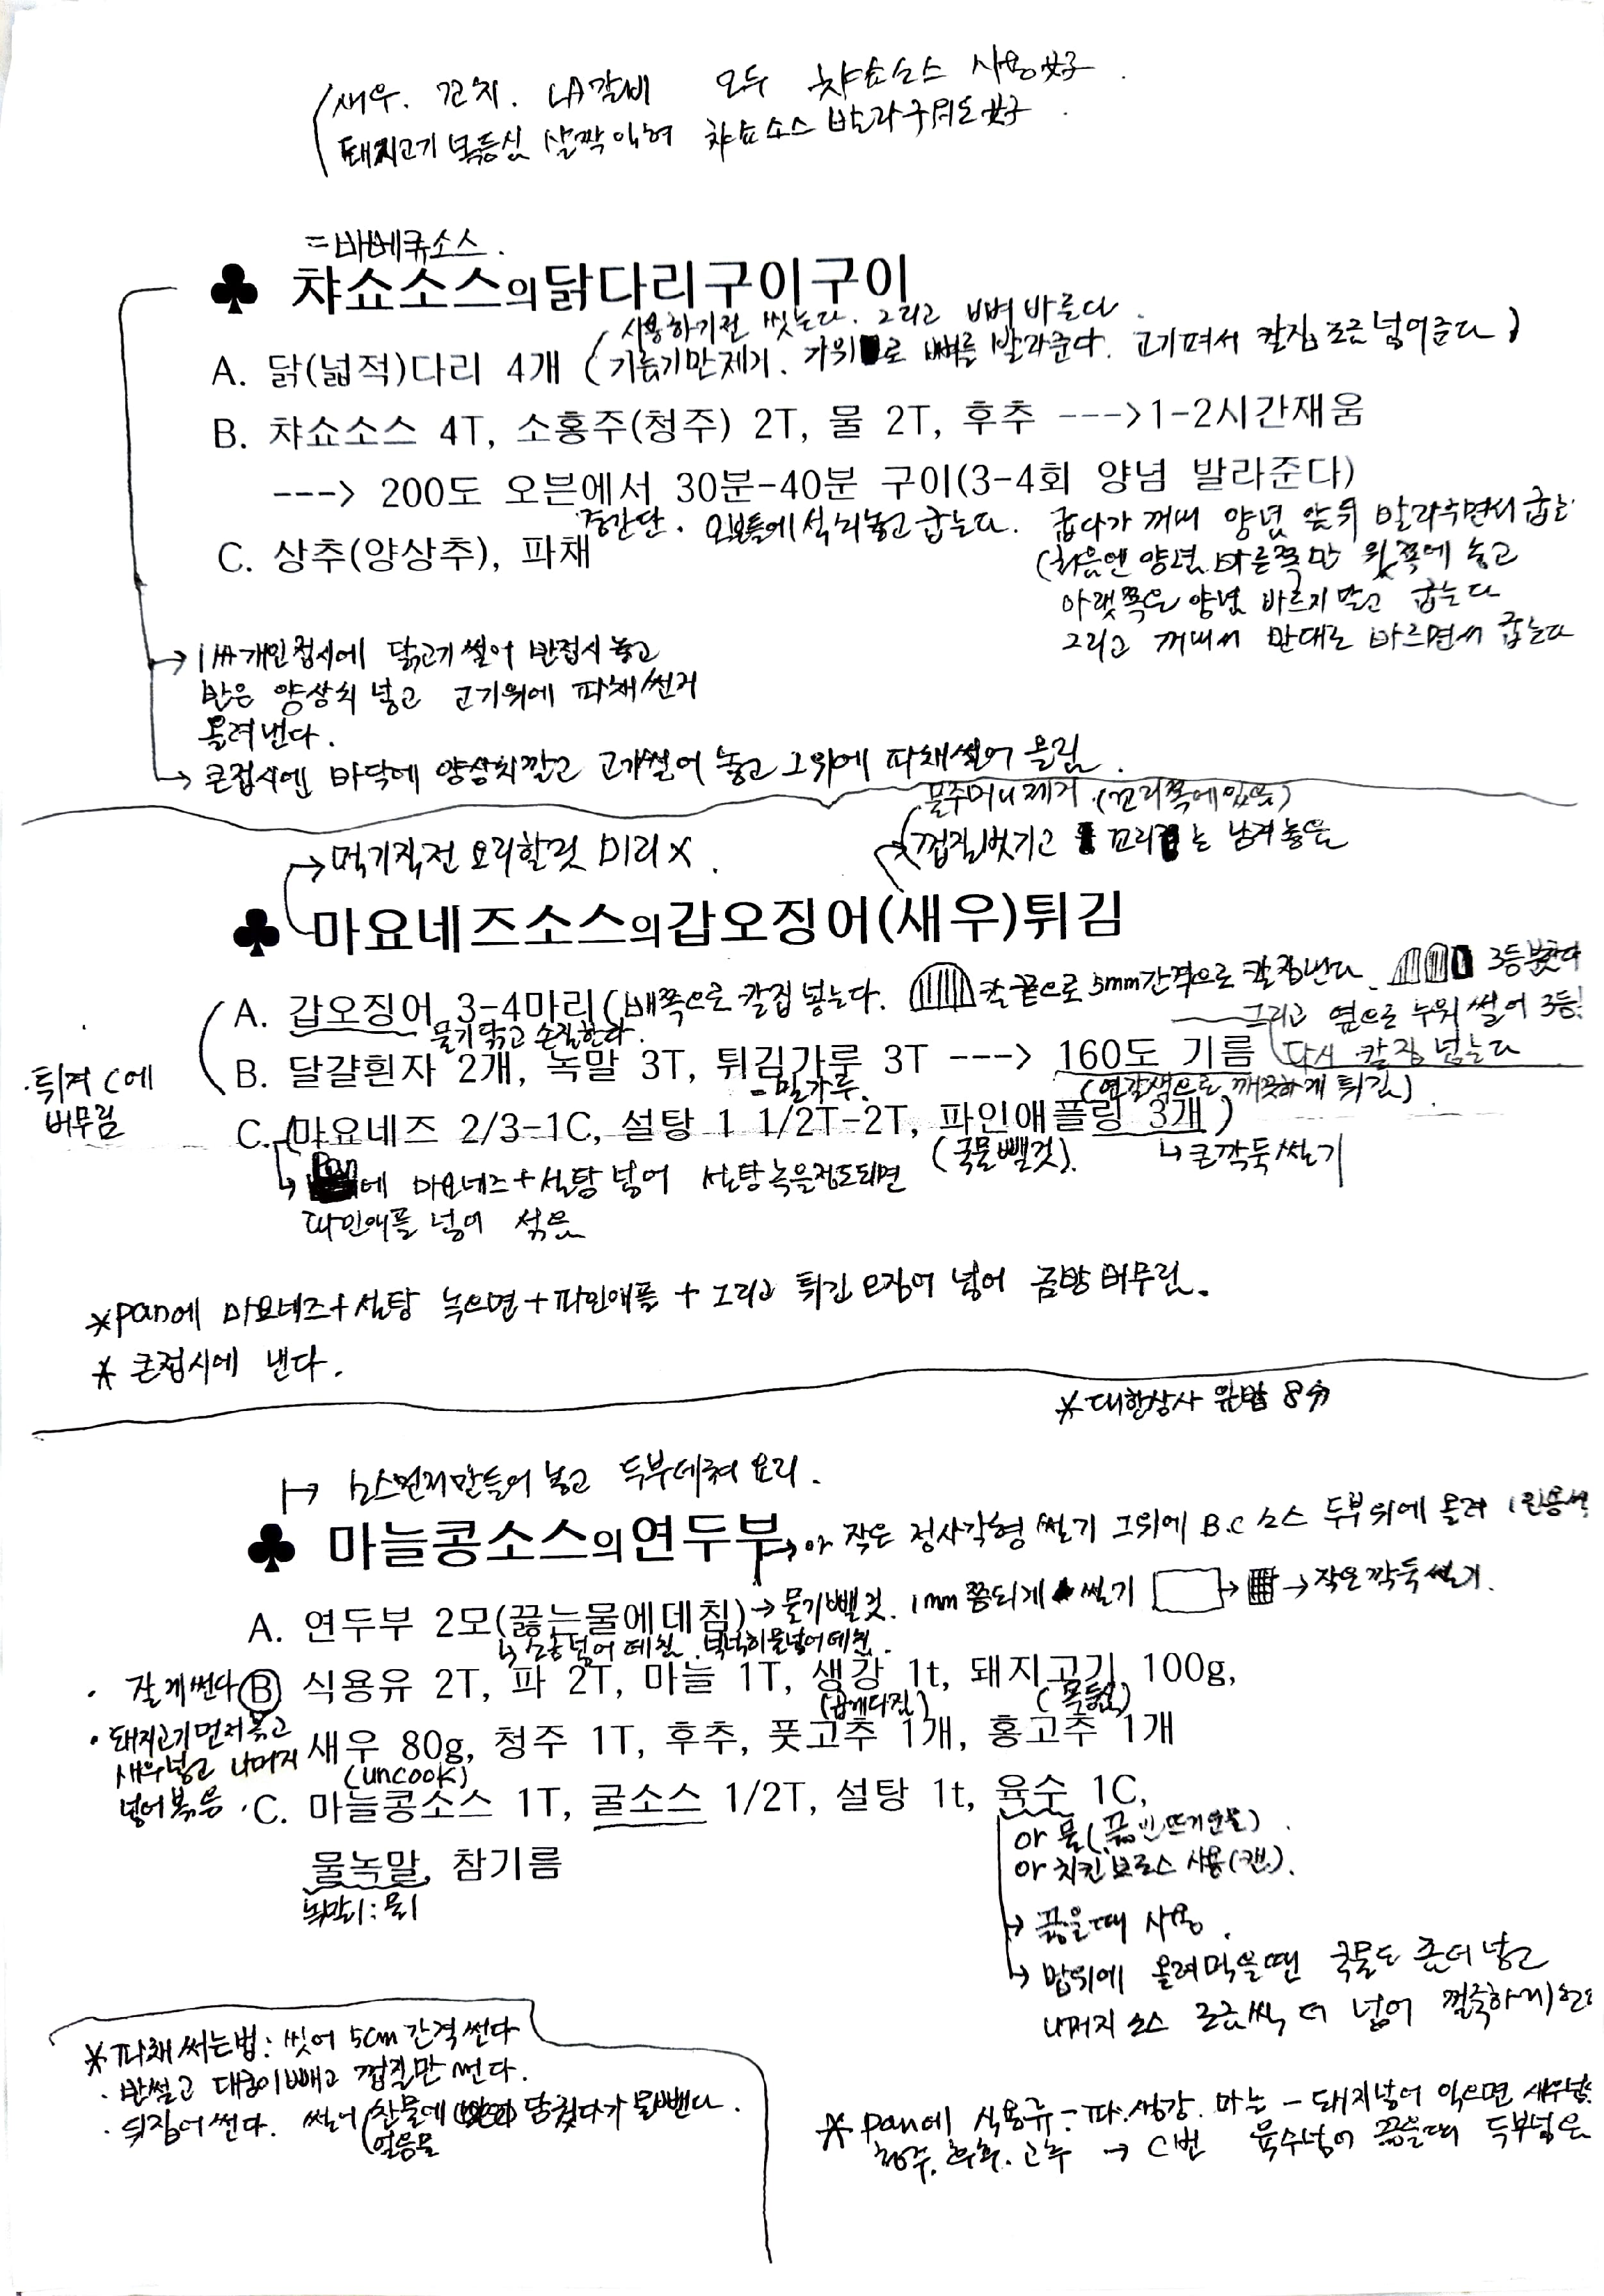 새우. 꼬치. LA갈비 모두 챠쇼소스 사용好
돼지고기 목등심 살짝 익혀 챠쇼소스 발라구워도 好
=바베큐소스.
♣ 챠쇼소스의닭다리구이구이
사용하기전 씻는다. 그리고 뼈 바른다.
A. 닭(넓적)다리 4개 (기름기만제거. 가위로 뼈를 발라준다. 고기펴서 칼집 조금 넣어준다)
B. 챠쇼소스 4T, 소홍주(청주) 2T, 물 2T, 후추 --->1-2시간재움
---> 200도 오븐에서 30분-40분 구이(3-4회 양념 발라준다)
중간단. 오븐틀에 식혀놓고 굽는다. 굽다가 꺼내 양념 앞뒤 발라주면서 굽는
C. 상추(양상추), 파채
(처음엔 양념 바른쪽만 윗쪽에 놓고
아랫쪽은 양념 바르지말고 굽는다
그리고 꺼내서 반대로 바르면서 굽는다
→ 1人개인접시에 닭고기썰어 반접시 놓고
반은 양상치 넣고 고기위에 파채썬거
올려낸다.
→ 큰접시엔 바닥에 양상치깔고 고기썰어 놓고 그위에 파채썰어 올림.
물주머니제거 (꼬리쪽에있음)
→ 먹기직전 요리할것 미리 X.
껍질벗기고 꼬리는 남겨놓음
♣ 마요네즈소스의갑오징어(새우)튀김
A. 갑오징어 3-4마리(배쪽으로 칼집 넣는다. 칼끝으로 5mm간격으로 칼집낸다. 3등분한다
물기닦고 손질한다.
그리고 옆으로 누워 썰어 3등
다시 칼집 넣는다
B. 달걀흰자 2개, 녹말 3T, 튀김가루 3T ---> 160도 기름
=밀가루.
(연갈색으로 깨끗하게 튀김)
·튀겨 C에
버무림
C. (마요네즈 2/3-1C, 설탕 1 1/2T-2T, 파인애플링 3개)
(국물뺄것).
↳ 큰깍둑썰기
↳ Pan에 마요네즈+설탕 넣어 설탕녹을정도되면
파인애플 넣어 섞음
*pan에 마요네즈+설탕 녹으면+파인애플 + 그리고 튀긴 오징어 넣어 금방 버무림.
* 큰접시에 낸다.
* 대한상사
→ 소스먼저만들어 놓고 두부데쳐 요리.
♣ 마늘콩소스의연두부 → or 작은 정사각형 썰기 그위에 B.C 소스 두부위에 올려
A. 연두부 2모(끓는물에데침) → 물기뺄것. 1mm쯤되게 썰기 → → 작은 깍둑썰기.
↳ 소금넣어 데침. 넉넉히물넣어데침.
· 잘게썬다 Ⓑ 식용유 2T, 파 2T, 마늘 1T, 생강 1t, 돼지고기 100g,
(곱게다짐)
(목등심)
· 돼지고기먼저볶고
새우넣고 나머지
넣어볶음.
새우 80g, 청주 1T, 후추, 풋고추 1개, 홍고추 1개
(uncook)
C. 마늘콩소스 1T, 굴소스 1/2T, 설탕 1t, 육수 1C,
or 물(끓인 뜨거운물).
or 치킨브로스 사용(캔).
물녹말, 참기름
녹말1:물1
→ 끓을때 사용.
→ 밥위에 올려먹을땐 국물도 좀더 넣고
나머지 소스 조금씩 더 넣어 걸쭉하게
*파채써는법: 씻어 5cm 간격썬다
· 반썰고 대궁이빼고 껍질만 썬다.
· 뒤집어썬다. 썰어 찬물에 담궜다가 물뺀다.
얼음물
* pan에 식용유-파.생강.마늘-돼지넣어 익으면 새우넣
청주. 후추. 고추 → C번 육수넣어 끓을때 두부넣음